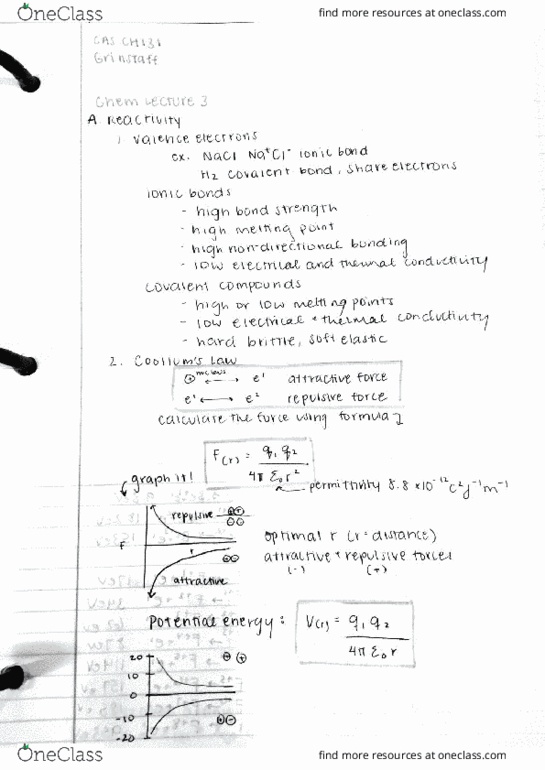 OneClass
find more resources at oneclass.com
CAS CH131
Grinstaff
Chem Lecture 3
A. Reactivity
1. Valence electrons
ex. NaCl Na⁺Cl⁻ ionic bond
H₂ covalent bond, share electrons
ionic bonds
- high bond strength
- high melting point
- high non-directional bonding
- low electrical and thermal conductivity
covalent compounds
- high or low melting points
- low electrical + thermal conductivity
- hard brittle, soft elastic
2. Coolumb's Law
⊕ nucleus ⟷ e' attractive force
e' ⟷ e² repulsive force
calculate the force using formula
F(r) = q₁ q₂ / 4π Σ₀ r²
graph it!
permittivity 8.8 ×10⁻¹² C² J⁻¹ m⁻¹
repulsive ⊕⊕
⊖⊖
F
r
⊕⊖
attractive
optimal r (r = distance)
attractive + repulsive forces
(-) (+)
Potential energy: V(r) = q₁ q₂ / 4π Σ₀ r
20
10
0
-10
-20
⊕ ⊕
⊕⊖
OneClass
find more resources at oneclass.com